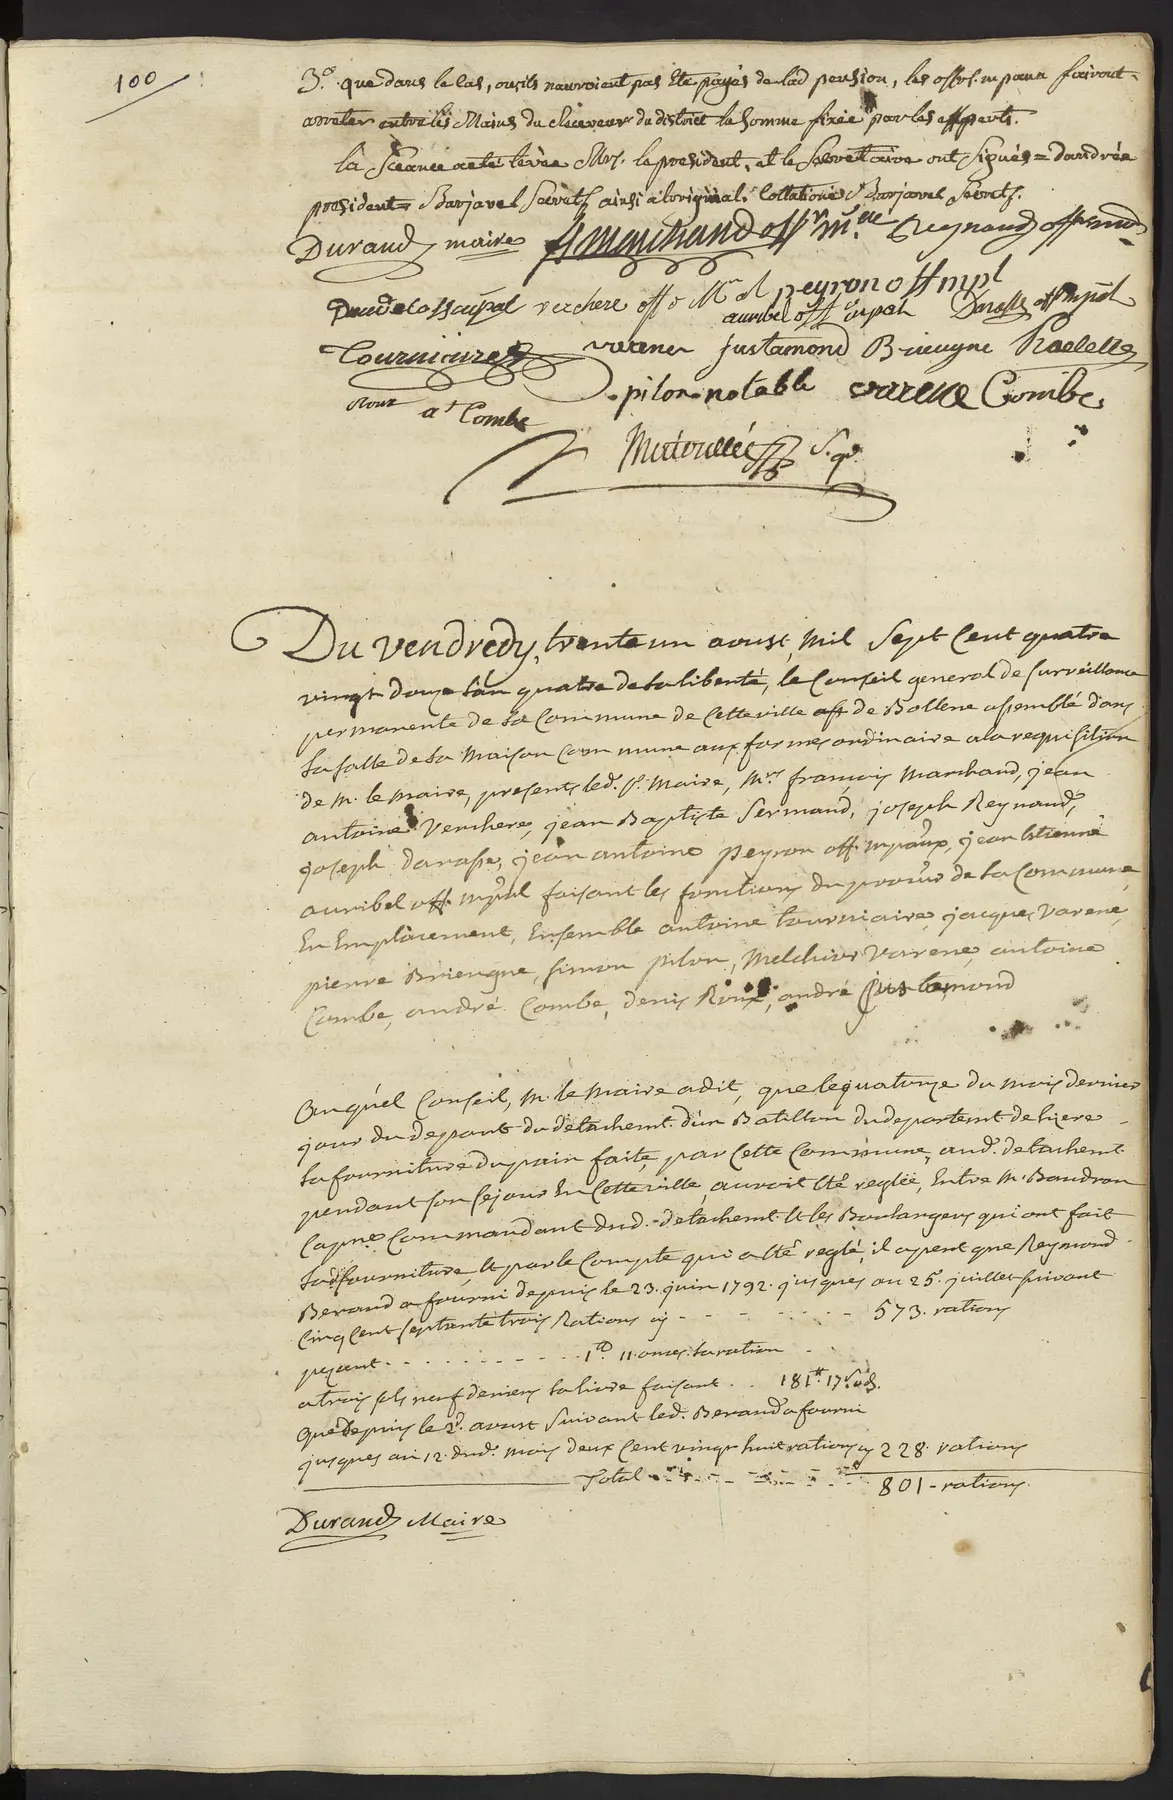 100
3.° que dans le cas, ou ils nauroient pas été payés de lad pension, les offrs. mpaux fairont
arreter entre les Mains du Receveur du district la somme fixée par les experts.
la Séance a eté levée Mrs. le president, et le secretaire ont signés = dandrée
president = Barjavel Secrét. ainsi a loriginal. Collationé Barjavel Secrét.
Durand maire ff marchand offr. m.ne Reynaud off mu
verchere off o M al peyron off mpl
auribel off mpal Darasse off mpal
Tourniaire varene Justamond Brieugne
Roux at Combe pilon notable varene Combe
S. g.
Du vendredy, trente un aoust, mil sept cent quatre
vingt douze l'an quatre de la liberté, le Conseil general de surveillance
permanente de la Commune de cette ville de Bollene assemblé dans
la salle de la Maison commune aux formes ordinaire a la requisition
de m. le maire, presents led. sr. Maire, Mrs. françois Marchand, jean
antoine Verchere, jean Baptiste Sermand, joseph Reynaud,
joseph darasse, jean antoine peyron off. mpaux, jean Etienne
auribel off. mpal faisant les fonctions du procur de la Commune,
En Emplacement, Ensemble antoine tourniaire, jacques Varene,
pierre Brieugne, simon pilon, Melchior Varene, antoine
Combe, andré Combe, denis Roux, andré Justamond
Auquel Conseil, M. le Maire a dit, que le quatorze du mois dernier
jour du depart du detachemt. d'un Batillon du departemt. de lizere
la fourniture du pain faite, par cette Commune, aud. detachemt.
pendant son sejour En cette ville, auroit été reglée, Entre M. Baudran
Capne. Commandant dud. detachemt. et les Boulangers qui ont fait
lad fourniture, et par le Compte qui a été reglé, il apert que Reymond
Beraud a fourni depuis le 23. juin 1792. jusques au 25. juillet suivant
Cinq cent septante trois Rations cy - - - - - - 573. rations
pezant - - - - - - - - 1 lb 11 onces. la ration
a trois sols neuf deniers la livre faisant . . 181 ₶ 17 s. d.
Que depuis le 2. aoust suivant led. Beraud a fourni
jusques au 12. dud. mois deux cent vingt huit rations cy 228. rations
Total - - - - - - 801 - rations
Durand Maire